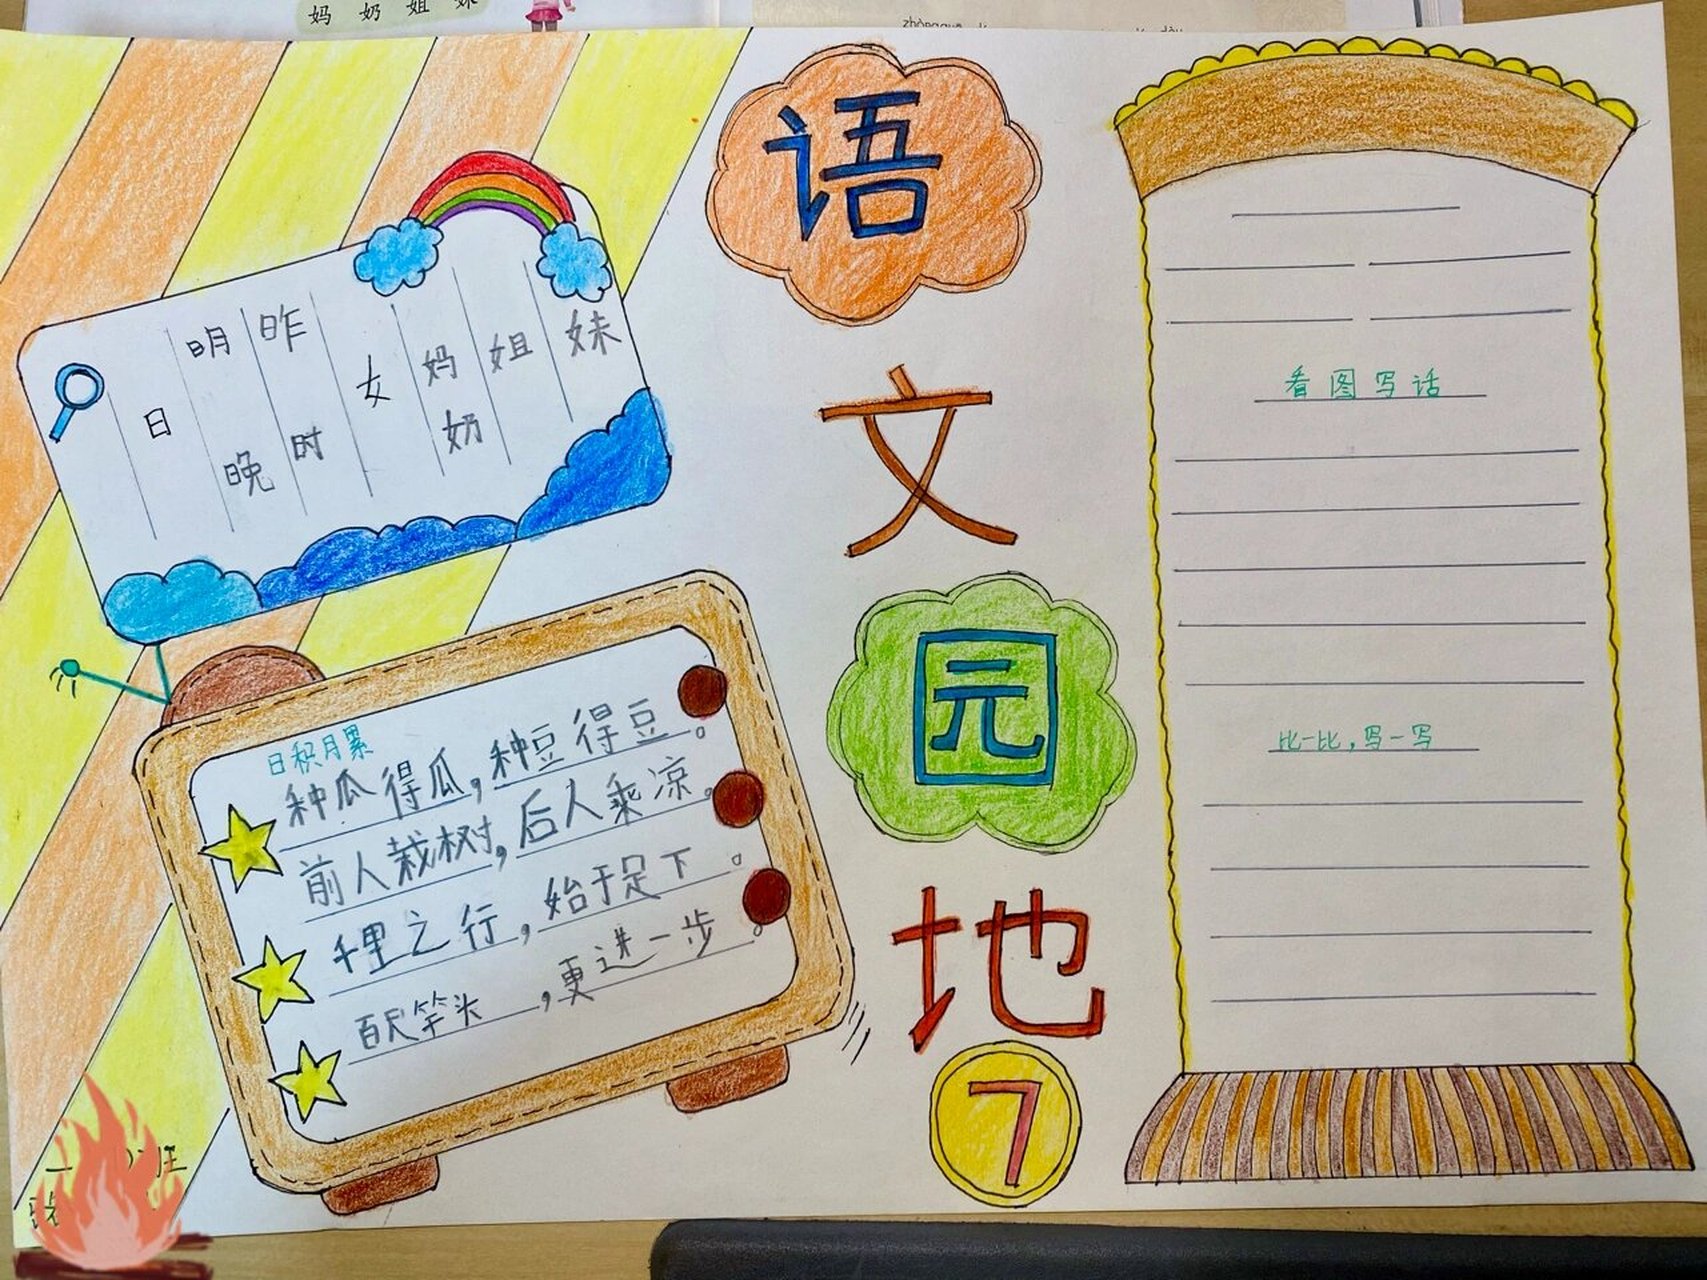 妈 奶 姐 妹
zhòng
语文园地7
日
明 晚
昨 时
女
妈 奶
姐
妹
日积月累
种瓜得瓜，种豆得豆。
前人栽树，后人乘凉。
千里之行，始于足下。
百尺竿头，更进一步。
看图写话
比一比，写一写
一
班